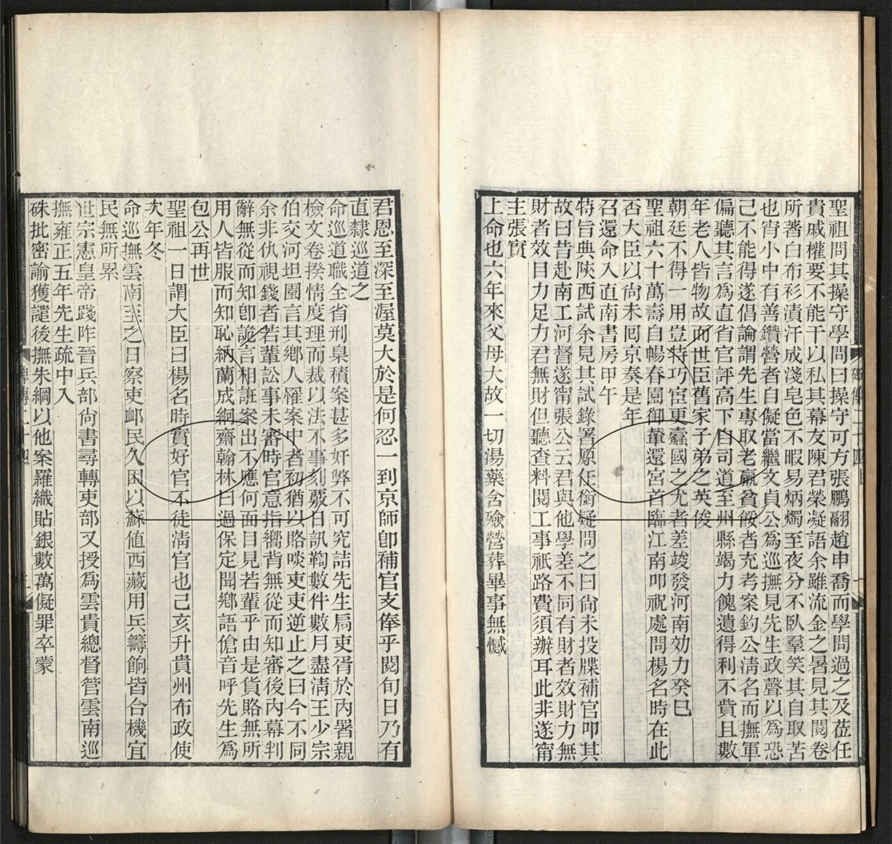 聖祖問其操守學問曰操守可方張鵬翮趙申喬而學問過之及莅任
貴戚權要不能干以私其幕友陳君榮凝語余雖流金之暑見其閱卷
所著白布衫漬汗成淺皂色不暇易炳燭至夜分不臥羣笑其自取苦
也宵小中有善鑽營者自儗當繼文貞公為巡撫見先生政聲以為恐
己不能得遂倡論謂先生專取老羸貧餒者充考案釣公清名而撫軍
偏聽其言為直省官評高下自司道至州縣竭力餽遺得利不貲且數
年老人皆物故而世臣舊家子弟之英俊
朝廷不得一用豈特巧宦更蠹國之尤者羞竣發河南効力癸巳
聖祖六十萬壽自暢春園御輦還宮首臨江南叩祝處問楊名時在此
否大臣以尚未囘京奏是年
召還命入直南書房甲午
特旨典陝西試余見其試錄署原任銜疑問之曰尚未投牒補官叩其
故曰昔赴南工河督遂甯張公云君與他學差不同有財者效財力無
財者效目力足力君無財但聽查料閱工事祇路費須辦耳此非遂甯
主張實
上命也六年來父母大故一切湯藥含殮營葬畢事無憾
君恩至深至渥莫大於是何忍一到京師卽補官支俸乎閱旬日乃有
直隸巡道之
命巡道職全省刑臬積案甚多奸弊不可究詰先生扃吏胥於內署親
檢文卷揆情度理而裁以法不事刻嚴日訊鞫數件數月盡清王少宗
伯交河坦園言其鄉人罹案中者初猶以賂啖吏吏逆止之曰今不同
余非仇視錢者若輩訟事未審時官意指嚮背無從而知審後內幕判
辭無從而知卽詭言相誑案出不應何面目見若輩乎由是貨賂無所
用人皆服而知恥納蘭成絅齋翰林曰過保定聞鄉語傖音呼先生為
包公再世
聖祖一日謂大臣曰楊名時實好官不徒淸官也己亥升貴州布政使
次年冬
命巡撫雲南至之日察吏卹民久困以蘇値西藏用兵籌餉皆合機宜
民無所累
世宗憲皇帝踐阼晉兵部尚書尋轉吏部又授為雲貴總督管雲南巡
撫雍正五年先生疏中入
硃批密諭獲譴後撫朱綱以他案羅織贓銀數萬儗罪卒蒙
碑傳二十四